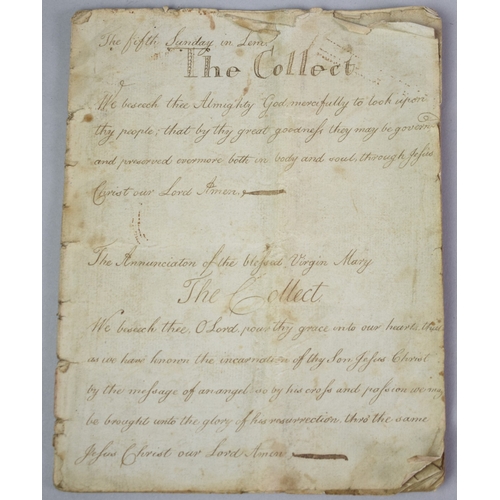 The Fifth Sunday in Len
The Collect
We beseech thee Almighty God, mercifully to look upon
thy people; that by thy great goodness they may be govern
and preserved evermore both in body and soul, through Jesus
Christ our Lord Amen.
The Annunciaton of the blessed Virgin Mary
The Collect
We beseech thee, O Lord pour thy grace into our hearts, that
as we have known the incarnation of thy Son Jesus Christ
by the message of an angel so by his cross and passion we may
be brought unto the glory of his resurrection, thro the same
Jesus Christ our Lord Amen